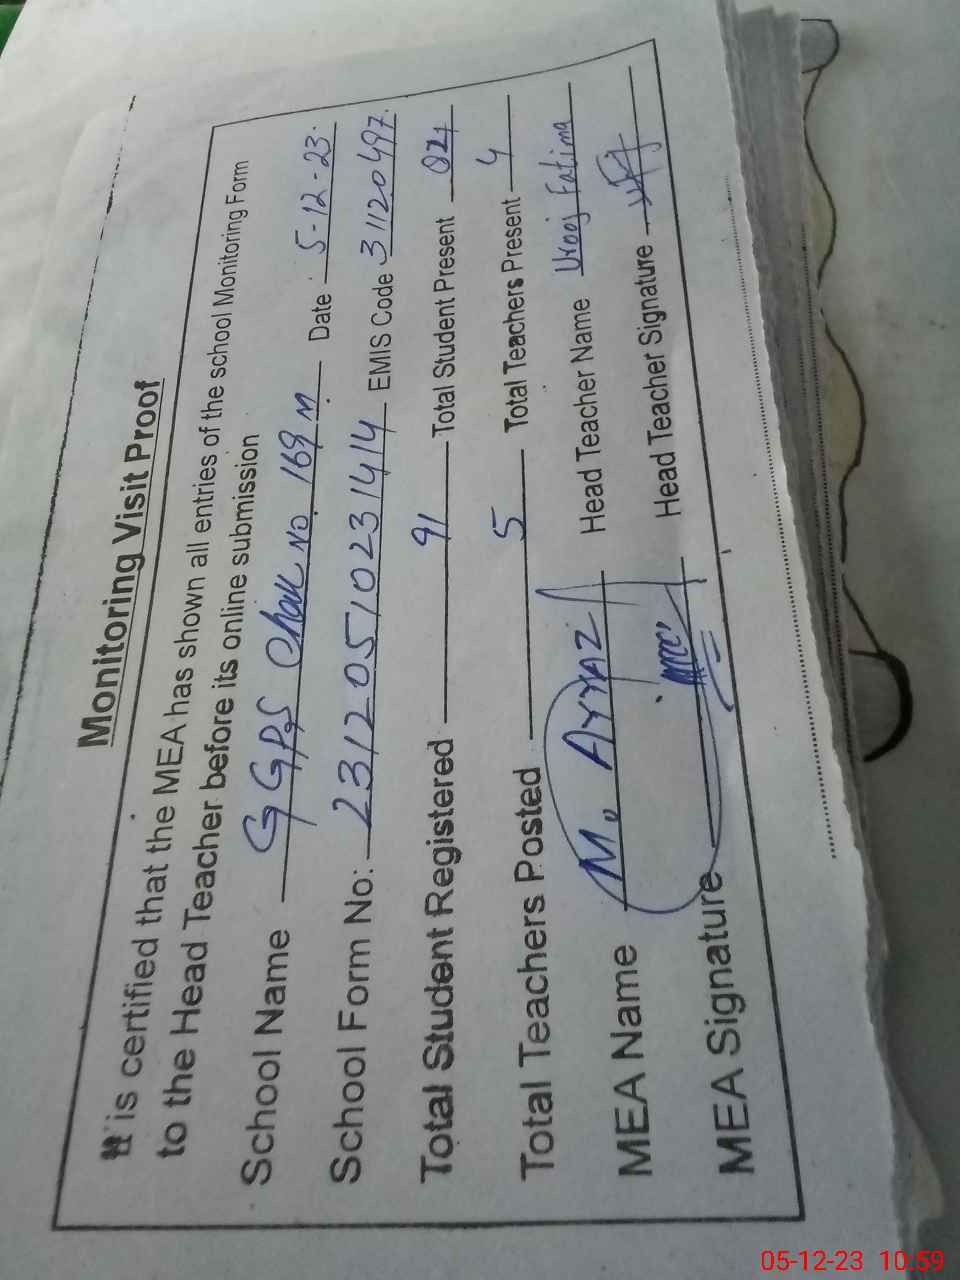 Monitoring Visit Proof
It is certified that the MEA has shown all entries of the school Monitoring Form
to the Head Teacher before its online submission
School Name GGPS Chak No. 169 M Date : 5-12-23.
School Form No: 23120510231414 EMIS Code 31120497.
Total Student Registered 91 Total Student Present
Total Teachers Posted 5 Total Teachers Present 4
MEA Name M. Ayyaz Head Teacher Name Urooj Fatima
MEA Signature Head Teacher Signature
05-12-23 10:59